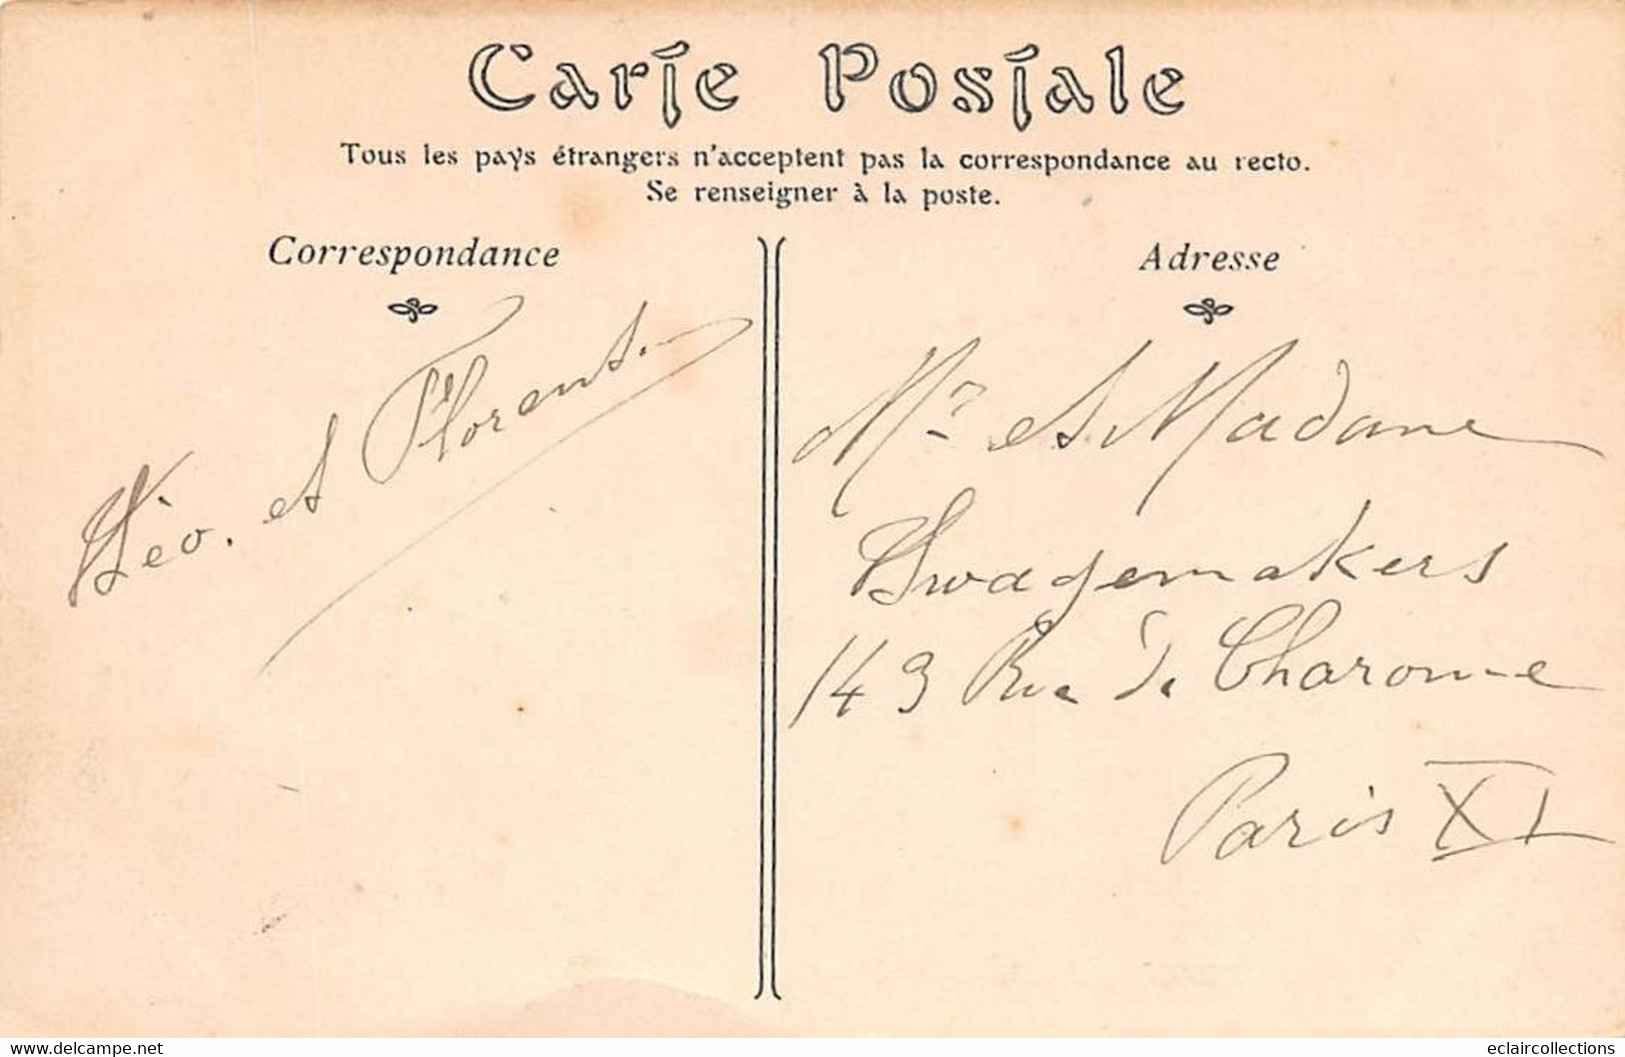 Carte Postale
Tous les pays étrangers n'acceptent pas la correspondance au recto.
Se renseigner à la poste.
Correspondance
Adresse
Léo. et Florent.
Mr et Madame
Swagemakers
143 Rue de Charonne
Paris XI
www.delcampe.net
eclaircollections